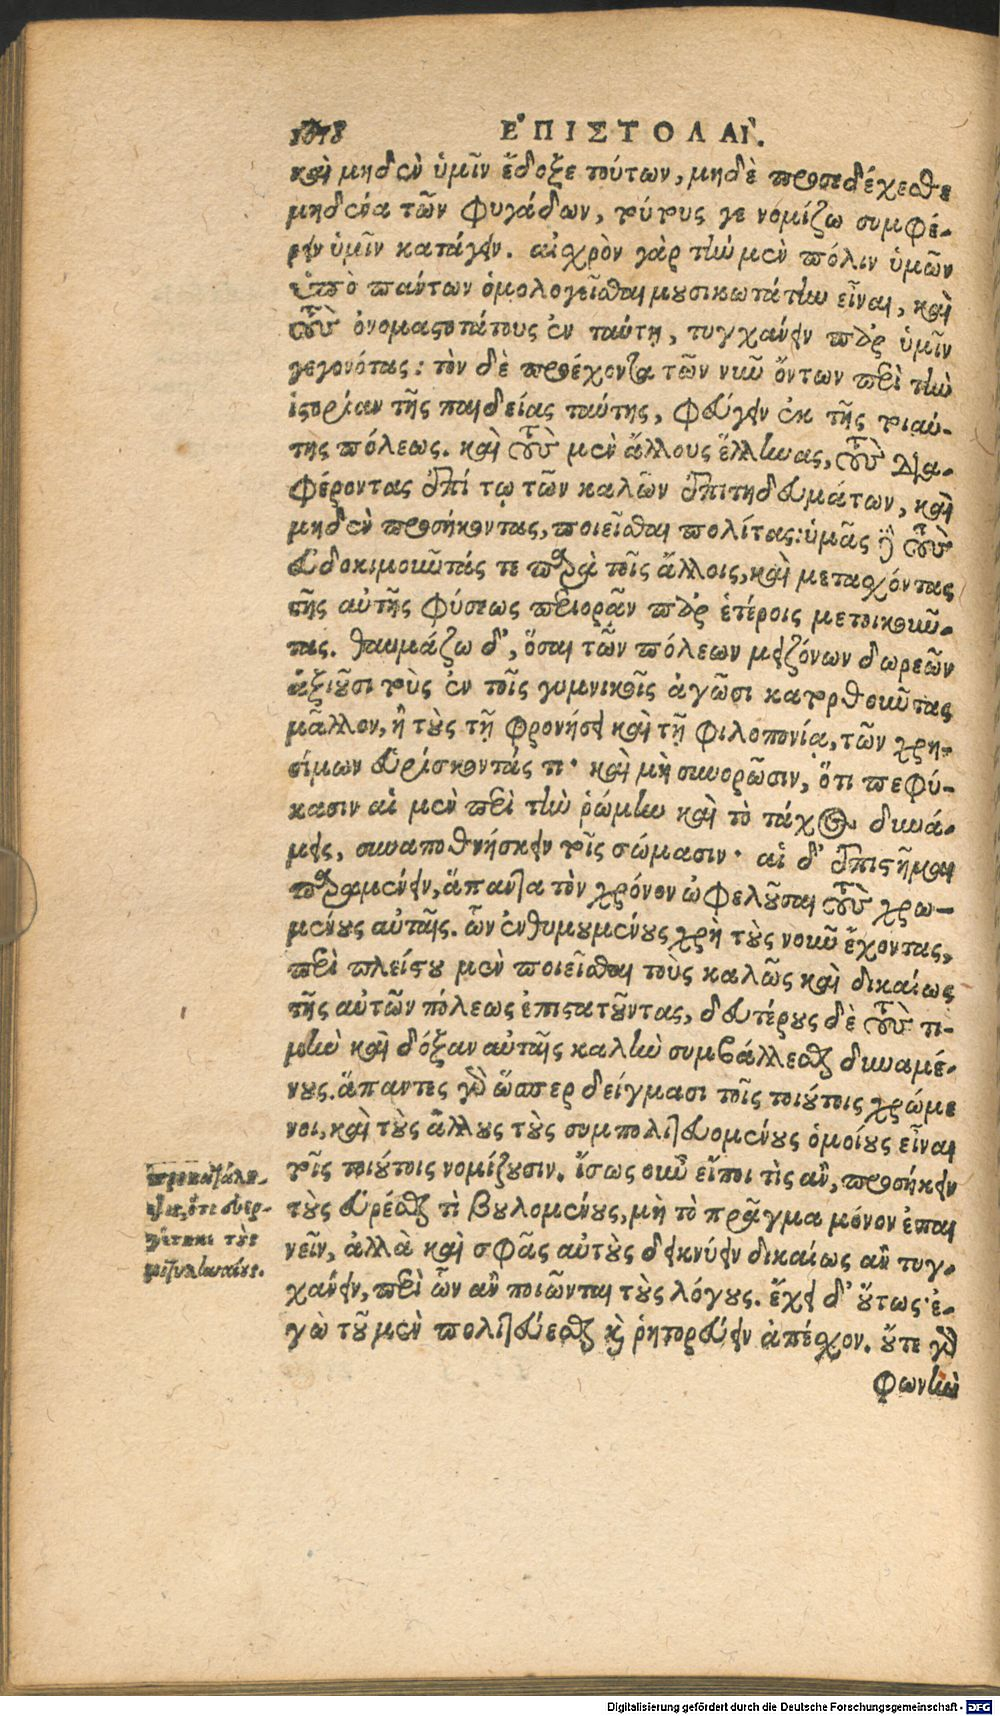 1078 ΕΠΙΣΤΟΛΑΙ.
καὶ μηδὲν ὑμῖν ἔδοξε τούτων, μηδὲ προσεδέχεσθε
μηδένα τῶν φυγάδων, τούτους γε νομίζω συμφέ-
ρειν ὑμῖν κατάγειν. αἰσχρὸν γὰρ τὴν μὲν πόλιν ὑμῶν
ὑπὸ πάντων ὁμολογεῖσθαι μουσικωτάτην εἶναι, καὶ
τοὺς ὀνομαστοτάτους ἐν ταύτῃ, τυγχάνειν παρ' ὑμῖν
γεγονότας: τὸν δὲ προέχοντα τῶν νῦν ὄντων περὶ τὴν
ἱστορίαν τῆς παιδείας ταύτης, φεύγειν ἐκ τῆς τοιαύ-
της πόλεως. καὶ τοὺς μὲν ἄλλους ἕλληνας, τοὺς δια-
φέροντας ἐπί τῳ τῶν καλῶν ἐπιτηδευμάτων, καὶ
μηδὲν προσήκοντας, ποιεῖσθαι πολίτας: ὑμᾶς δὲ τοὺς
εὐδοκιμοῦντάς τε παρὰ τοῖς ἄλλοις, καὶ μετασχόντας
τῆς αὐτῆς φύσεως περιορᾶν παρ' ἑτέροις μετοικοῦν-
τας. θαυμάζω δ', ὅσαι τῶν πόλεων μειζόνων δωρεῶν
ἀξιοῦσι τοὺς ἐν τοῖς γυμνικοῖς ἀγῶσι κατορθοῦντας
μᾶλλον, ἢ τοὺς τῇ φρονήσει καὶ τῇ φιλοπονίᾳ, τῶν χρη-
σίμων εὑρίσκοντάς τι· καὶ μὴ συνορῶσιν, ὅτι πεφύ-
κασιν αἱ μὲν περὶ τὴν ῥώμην καὶ τὸ τάχος δυνά-
μεις, συναποθνήσκειν τοῖς σώμασιν· αἱ δ' ἐπιστῆμαι
παραμένειν, ἅπαντα τὸν χρόνον ὠφελοῦσαι τοὺς χρω-
μένους αὐταῖς. ὧν ἐνθυμουμένους χρὴ τοὺς νοῦν ἔχοντας,
περὶ πλείστου μὲν ποιεῖσθαι τοὺς καλῶς καὶ δικαίως
τῆς αὐτῶν πόλεως ἐπιστατοῦντας, δευτέρους δὲ τοὺς τι-
μὴν καὶ δόξαν αὐταῖς καλὴν συμβάλλεσθαι δυναμέ-
νους. ἅπαντες γὰρ ὥσπερ δείγμασι τοῖς τοιούτοις χρώμε
νοι, καὶ τοὺς ἄλλους τοὺς συμπολιτευομένους ὁμοίους εἶναι
τοῖς τοιούτοις νομίζουσιν. ἴσως οὖν εἴποι τὶς ἂν, προσήκειν
τοὺς εὑρέσθαι τὶ βουλομένους, μὴ τὸ πρᾶγμα μόνον ἐπαι
νεῖν, ἀλλὰ καὶ σφᾶς αὐτοὺς δεικνύειν δικαίως ἂν τυγ-
χάνειν, περὶ ὧν ἂν ποιῶνται τοὺς λόγους. ἔχει δ' οὕτως· ἐ-
γὼ τοῦ μὲν πολιτεύεσθαι καὶ ῥητορεύειν ἀπέσχον. οὔτε γὰρ
φωνὴν
ὅτι εὐερ-
τοὺς
μιτυληναίους.